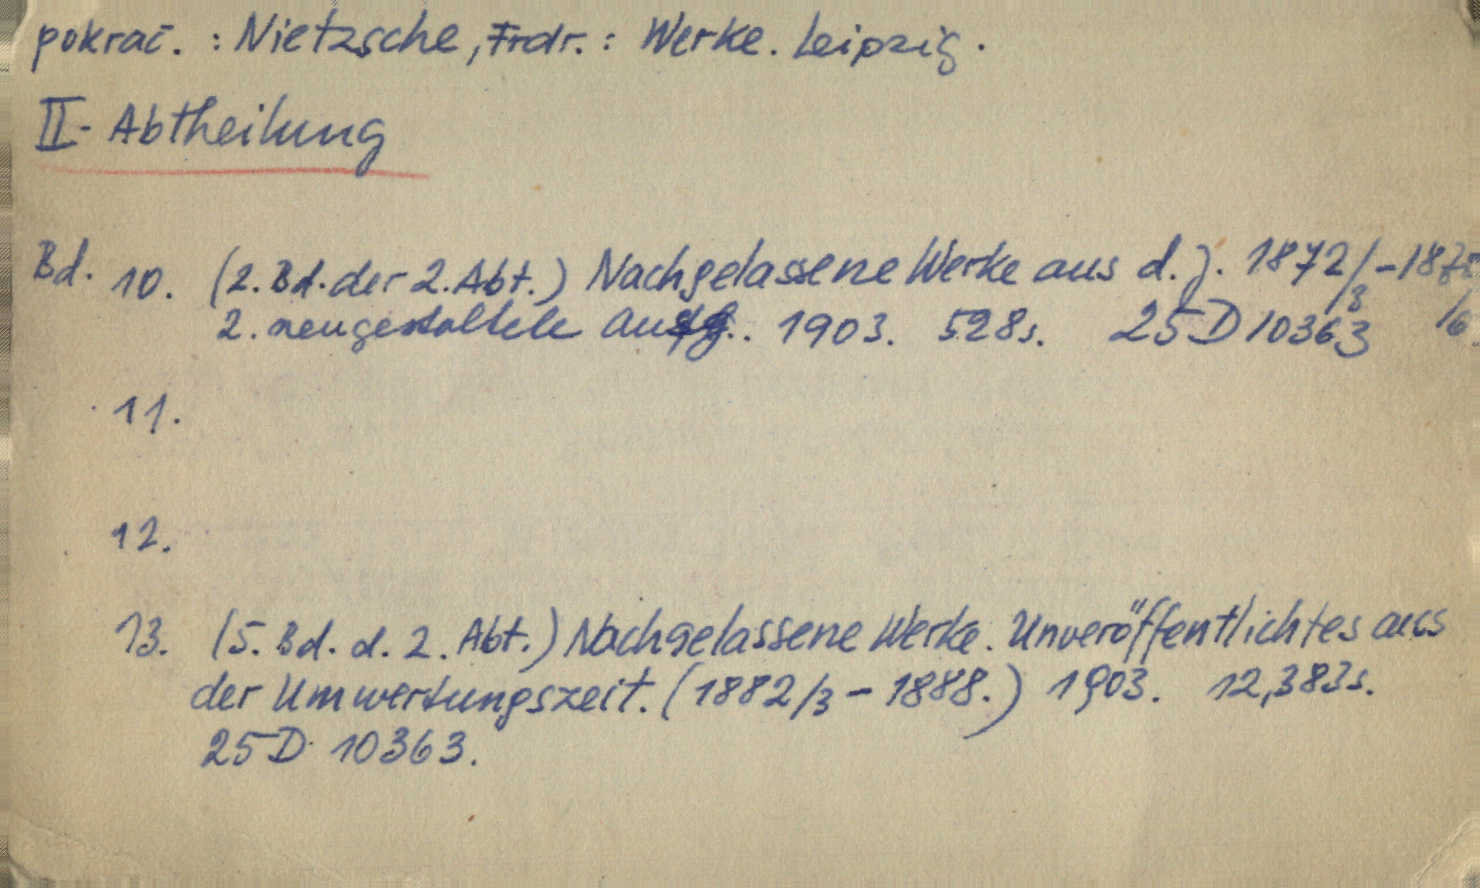 pokrač. : Nietzsche, Frdr. : Werke. Leipzig.
II. Abtheilung
Bd. 10. (2. Bd. der 2. Abt.) Nachgelassene Werke aus d. J. 1872/3-1875/6.
2. neugestaltete Ausg. 1903. 528s. 25 D 10363
11.
12.
13. (5. Bd. d. 2. Abt.) Nachgelassene Werke. Unveröffentlichtes aus
der Umwertungszeit. (1882/3 - 1888.) 1903. 12,383s.
25 D 10363.